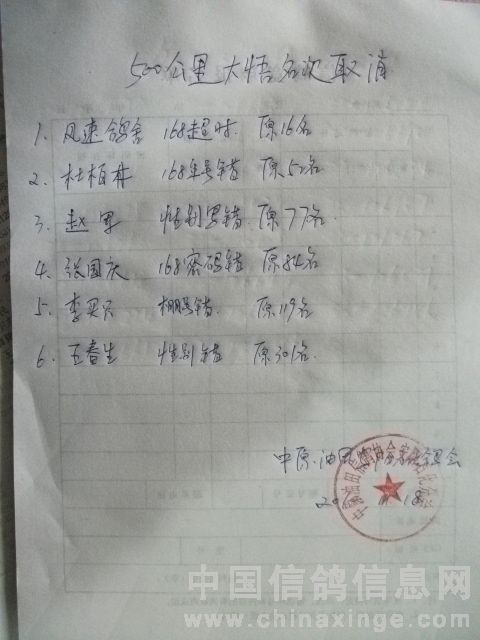 500公里大悟名次取消
1. 风速鸽舍 168超时. 原16名
2. 杜柏林 168年号错 原52名
3. 赵军 性别写错 原77名
4. 张国庆 168密码错 原84名
5. 李买只 棚号错. 原119名
6. 王春生 性别错 原301名.
中原油田
中国信鸽信息网
www.chinaxinge.com